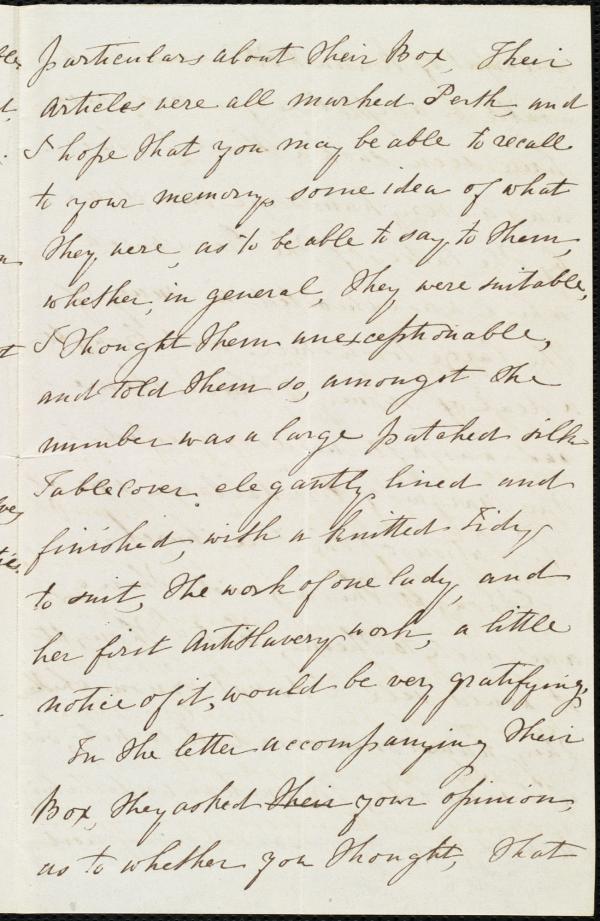 particulars about their Box, Their
Articles were all marked Perth, and
I hope that you may be able to recall
to your memory, some idea of what
they were, as to be able to say to them,
whether, in general, they were suitable,
I thought them unexceptionable,
and told them so, amongst the
number was a large patched silk
Tablecover elegantly lined and
finished, with a knitted Tidy
to suit, the work of one lady, and
her first AntiSlavery work, a little
notice of it, would be very gratifying,
In the letter accompanying their
Box, they asked their your opinion,
as to whether you thought, that